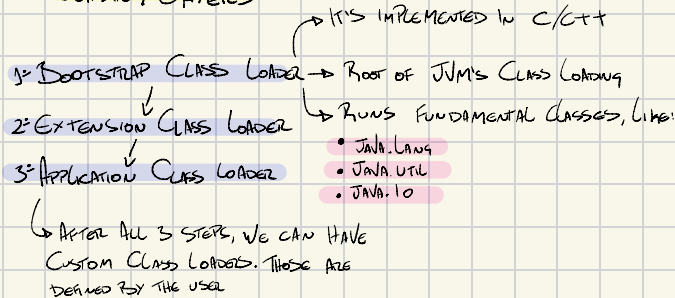 → IT'S IMPLEMENTED IN C/C++
1º BOOTSTRAP CLASS LOADER → ROOT OF JVM'S CLASS LOADING
→ RUNS FUNDAMENTAL CLASSES, LIKE:
2º EXTENSION CLASS LOADER
• JAVA.LANG
• JAVA.UTIL
3º APPLICATION CLASS LOADER
• JAVA.IO
→ AFTER ALL 3 STEPS, WE CAN HAVE
CUSTOM CLASS LOADERS. THOSE ARE
DEFINED BY THE USER